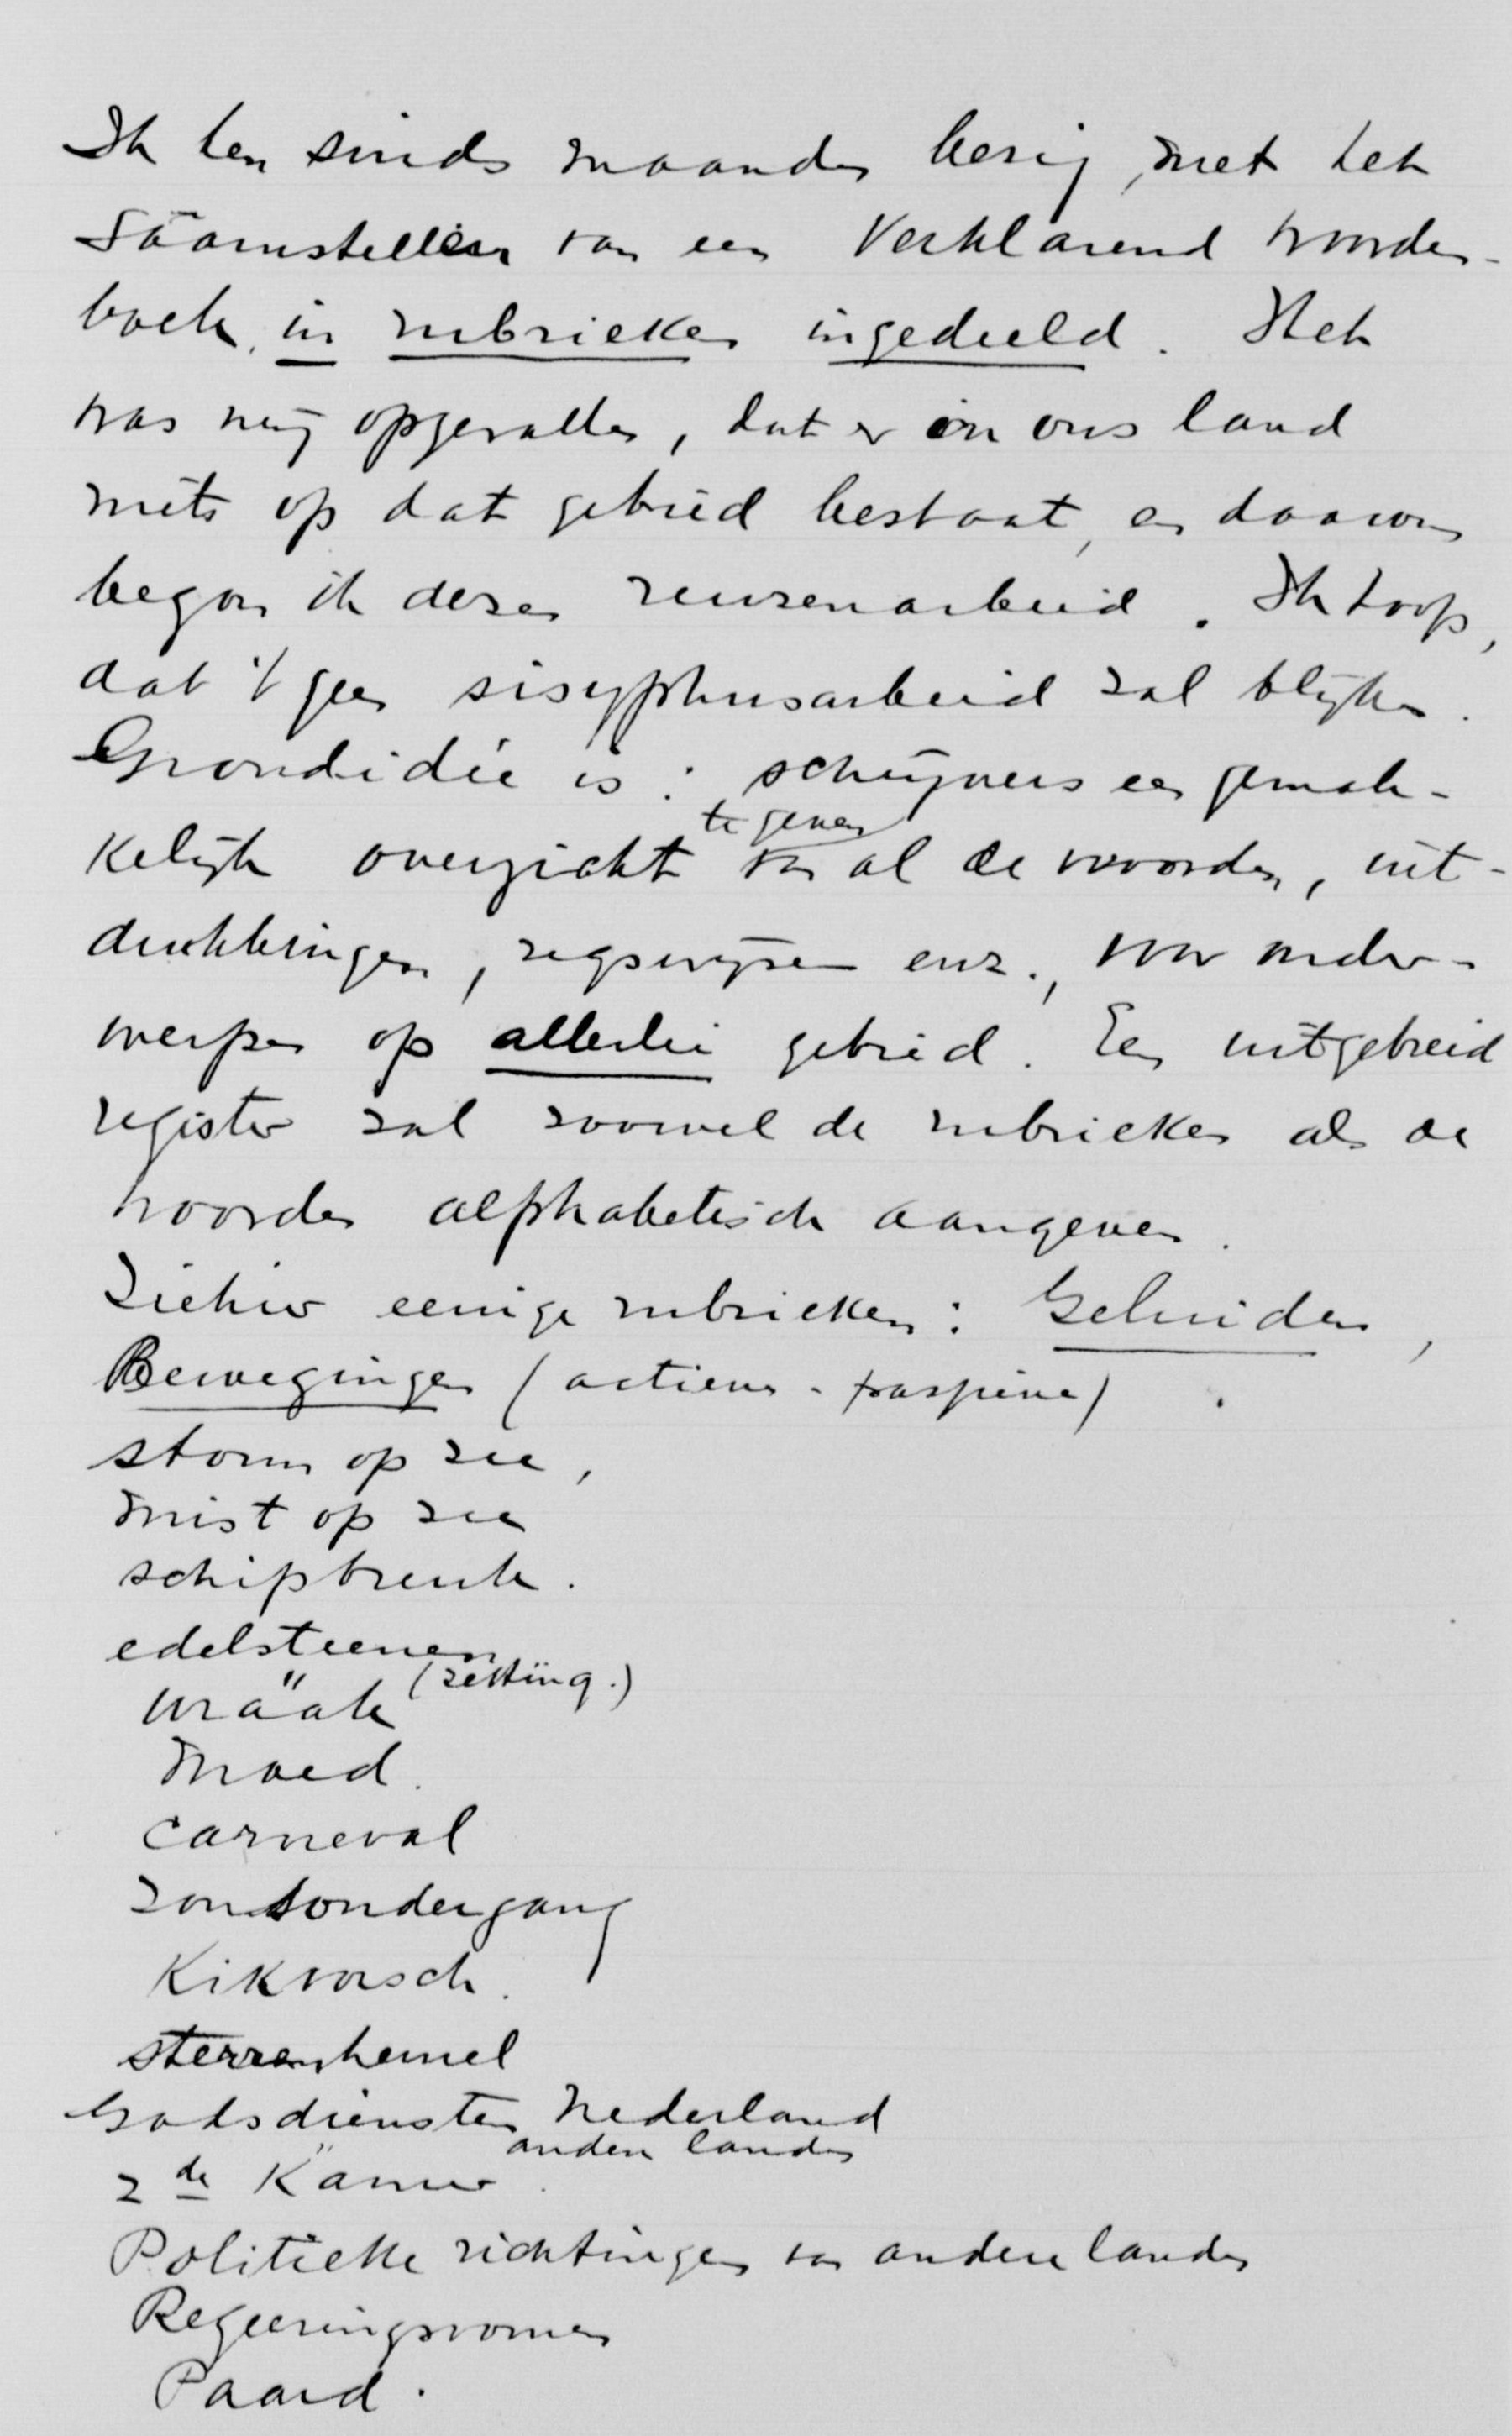 Ik ben sinds maanden bezig, met het
Säamstellen van een Verklarend woorden-
boek, in rubrieken ingedeeld. Het
was mij opgevallen, dat er in ons land
niets op dat gebied bestaat, en daarom
begon ik dezen reuzenarbeid. Ik hoop,
dat 't geen sisyphusarbeid zal blijken.
Grondidée is: schrijvers een gemak-
te geven
kelijk overzicht van al de woorden, uit-
drukkingen, zegswijzen enz., voor onder-
werpen op allerlei gebied. Een uitgebreid
register zal zoowel de rubrieken als de
woorden alphabetisch aangeven.
Ziehier eenige rubrieken: Geluiden,
Bewegingen (actieve - passieve)
storm op zee,
mist op zee
schipbreuk.
edelsteenen
(zetting.)
wraak
moed.
carneval
zonsondergang
Kikvorsch.
sterrenhemel
Godsdiensten Nederland
andere landen
2de Kamer.
Politieke richtingen van andere landen
Regeeringsvormen
Paard.